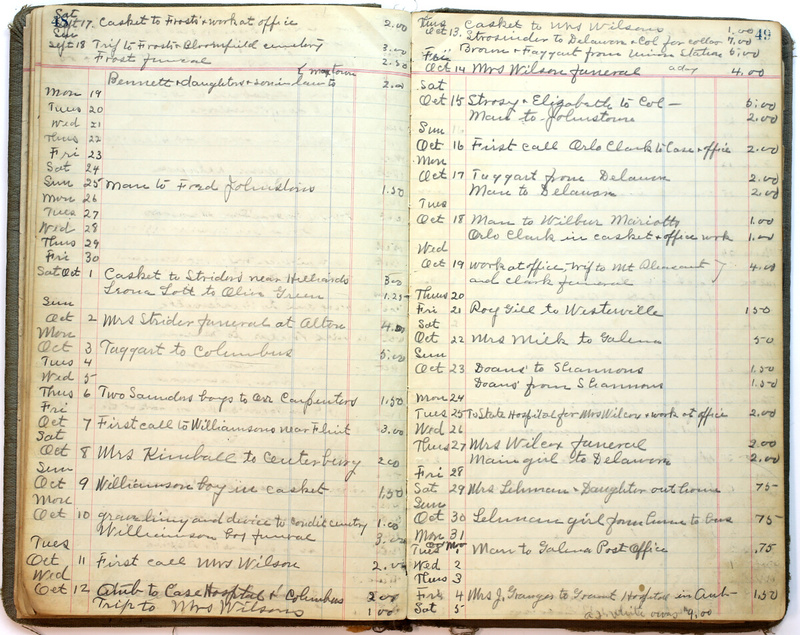 48
Sat
Sept 17. Casket to Frosts + work at office 2.00
Sun
Sept 18 Trip to Frosts + Bloomfield cemetery 3.00
Frost funeral 2.50
Bennett + daughters + son in law to 2.00
Mon 19
Tues 20
Wed 21
Thus 22
Fri 23
Sat 24
Sun 25 Man to Fred Johnstons 1.50
Mon 26
Tues 27
Wed 28
Thus 29
Fri 30
Sat Oct 1 Casket to Striders near Hilliards 3.00
Leona Lott to Olive Green 1.25
Sun
Oct 2 Mrs Strider funeral at Alton 4.00
Mon
Oct 3 Taggart to Columbus 5.00
Tues 4
Wed 5
Thus 6 Two Saunders boys to Carpenters 1.50
Fri
Oct 7 First call to Williamsons near Flint 3.00
Sat
Oct 8 Mrs Kimball to Centerburg 2.00
Sun
Oct 9 Williamson boy in casket 1.50
Mon
Oct 10 grave lining and device to Condit cemetry 1.00
Williamson boy funeral 3.00
Tues
Oct 11 First call Mrs Wilson 2.00
Wed
Oct 12 Amb to Case Hospital Columbus 2.00
Trip to Mrs Wilsons 1.00
49
Thus
Oct 13. Casket to Mrs Wilsons 1.00
Strosinder to Delaware + Col for collar 7.00
Brown + Taggart from Union Station 5.00
Fri
Oct 14 Mrs Wilson funeral a day 4.00
Sat
Oct 15 Strosy + Elizabeth to Col - 5.00
Man to Johnstown 2.00
Sun
Oct 16 First call Orlo Clark to Case + office 2.00
Mon
Oct 17 Taggart from Delawar 2.00
Man to Delawar 2.00
Tues
Oct 18 Man to Wilbur Mariotts 1.00
Orlo Clark in casket + office work 1.00
Wed
Oct 19 work at office, trip to Mt Pleasant 4.00
and Clark funeral
Thus 20
Fri 21 Roy Gill to Westerville 1.50
Sat
Oct 22 Mrs Milk to Galena 50
Sun
Oct 23 Doans to Shannons 1.50
Doans from Shannons 1.50
Mon 24
Tues 25 To State Hospital for Mrs Wilcox + work at office 2.00
Wed 26
Thus 27 Mrs Wilcox funeral 2.00
Main girl to Delawar 2.00
Fri 28
Sat 29 Mrs Lehman + Daughter out home 75-
Sun
Oct 30 Lehman girl from home to bus 75-
Mon 31
Tues Nov 1. Man to Galena Post Office .75
Wed 2
Thus 3
Fri 4 Mrs J. Granger to Grant Hospital in Amb- 1.50
Sat 5 owes 9.00